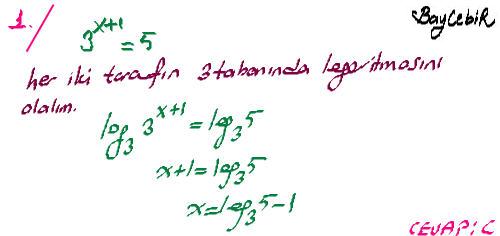 1./ BayCebiR
3^{x+1} = 5
her iki tarafın 3 tabanında logaritmasını
alalım.
log_3 3^{x+1} = log_3 5
x+1 = log_3 5
x = log_3 5 - 1
CEVAP: C